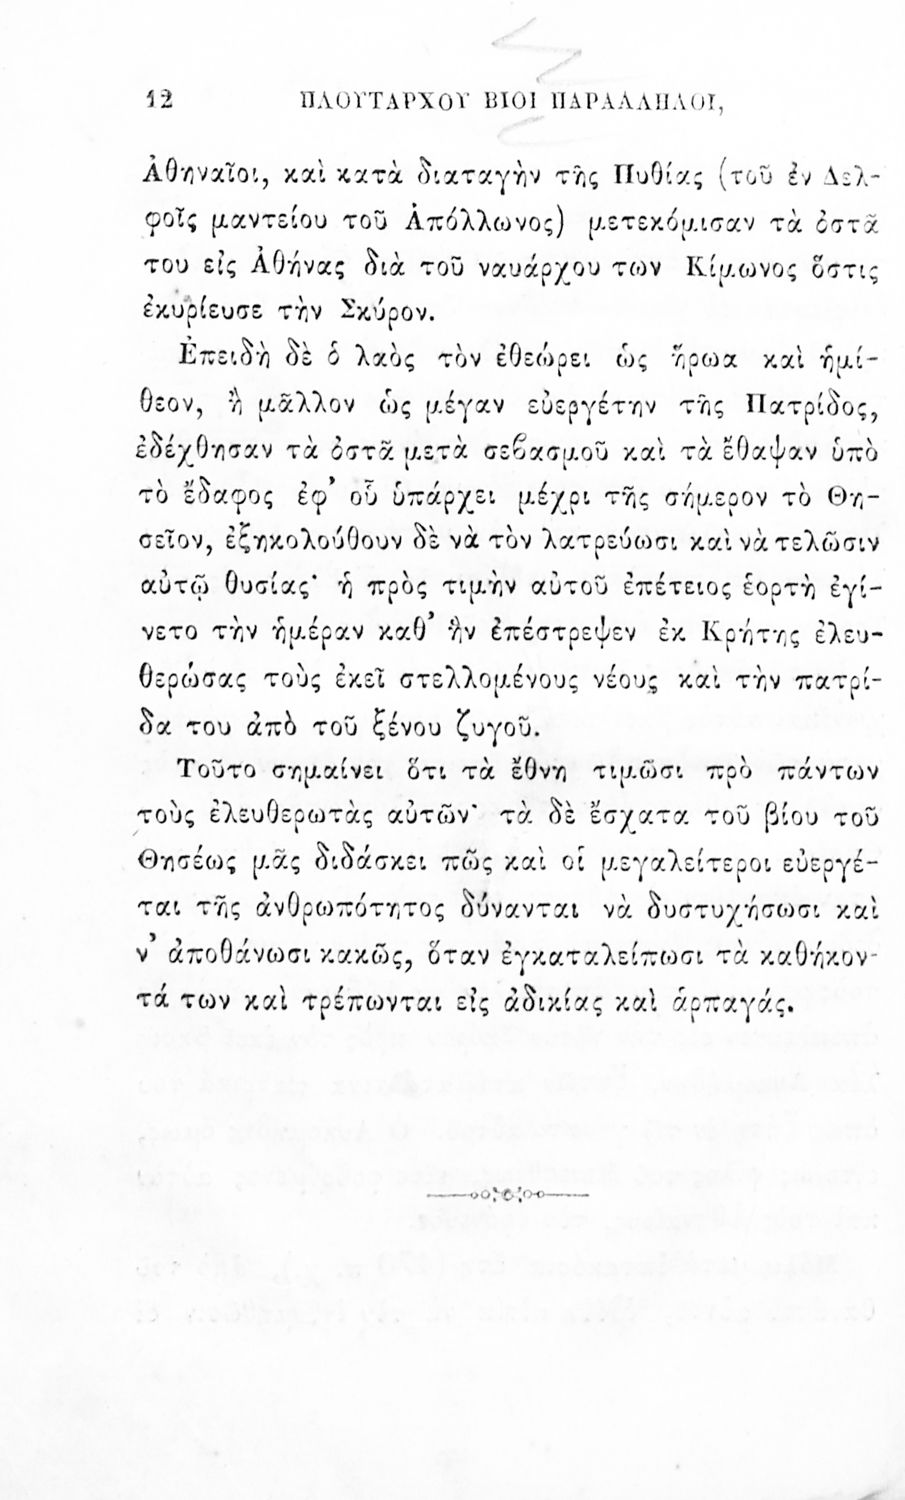 12 ΠΛΟΥΤΑΡΧΟΥ ΒΙΟΙ ΠΑΡΑΛΛΗΛΟΙ,
Ἀθηναῖοι, καὶ κατὰ διαταγὴν τῆς Πυθίας (τοῦ ἐν Δελ-
φοῖς μαντείου τοῦ Ἀπόλλωνος) μετεκόμισαν τὰ ὀστᾶ
του εἰς Ἀθήνας διὰ τοῦ ναυάρχου των Κίμωνος ὅστις
ἐκυρίευσε τὴν Σκύρον.
Ἐπειδὴ δὲ ὁ λαὸς τὸν ἐθεώρει ὡς ἥρωα καὶ ἡμί-
θεον, ἢ μᾶλλον ὡς μέγαν εὐεργέτην τῆς Πατρίδος,
ἐδέχθησαν τὰ ὀστᾶ μετὰ σεβασμοῦ καὶ τὰ ἔθαψαν ὑπὸ
τὸ ἔδαφος ἐφ’ οὗ ὑπάρχει μέχρι τῆς σήμερον τὸ Θη-
σεῖον, ἐξηκολούθουν δὲ νὰ τὸν λατρεύωσι καὶ νὰ τελῶσιν
αὐτῷ θυσίας· ἡ πρὸς τιμὴν αὐτοῦ ἐπέτειος ἑορτὴ ἐγί-
νετο τὴν ἡμέραν καθ’ ἣν ἐπέστρεψεν ἐκ Κρήτης ἐλευ-
θερώσας τοὺς ἐκεῖ στελλομένους νέους καὶ τὴν πατρί-
δα του ἀπὸ τοῦ ξένου ζυγοῦ.
Τοῦτο σημαίνει ὅτι τὰ ἔθνη τιμῶσι πρὸ πάντων
τοὺς ἐλευθερωτὰς αὐτῶν· τὰ δὲ ἔσχατα τοῦ βίου τοῦ
Θησέως μᾶς διδάσκει πῶς καὶ οἱ μεγαλείτεροι εὐεργέ-
ται τῆς ἀνθρωπότητος δύνανται νὰ δυστυχήσωσι καὶ
ν’ ἀποθάνωσι κακῶς, ὅταν ἐγκαταλείπωσι τὰ καθήκον-
τά των καὶ τρέπωνται εἰς ἀδικίας καὶ ἁρπαγάς.